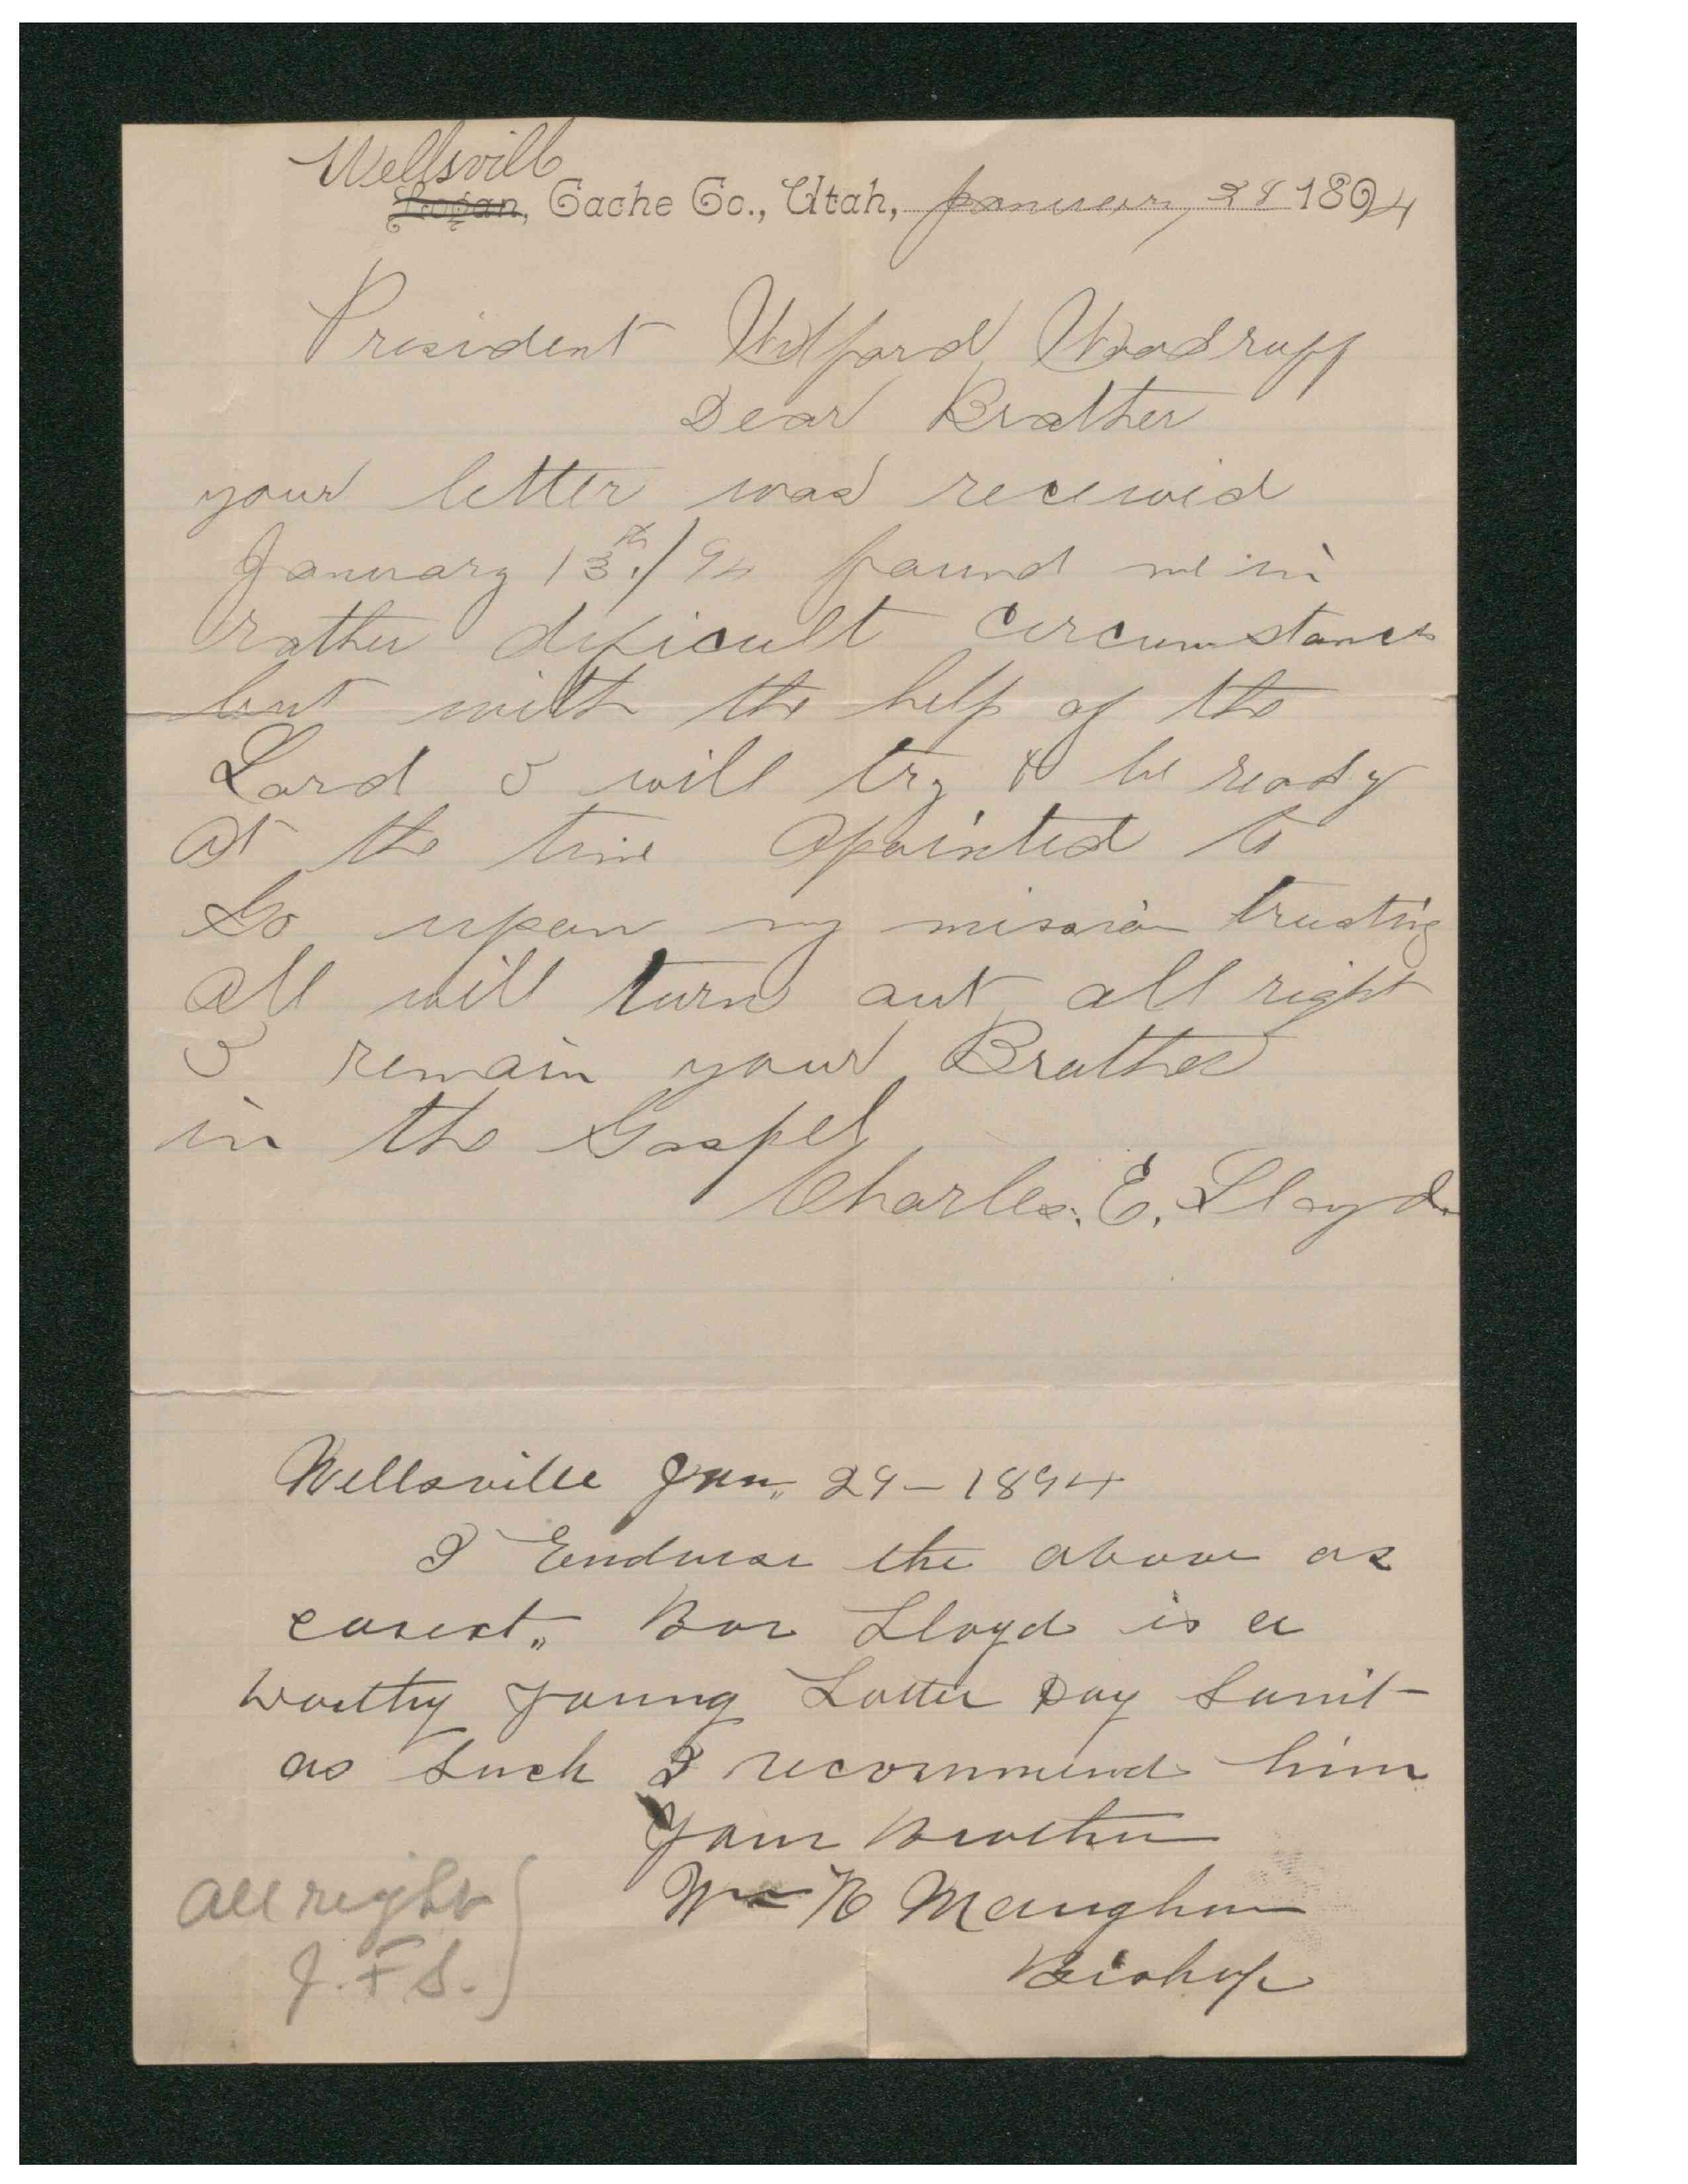 Wellsvill
Logan, Cache Co., Utah, January 28 1894
President Wilford Woodruff
Dear Brother
your letter was receivid
January 13th./94 found me in
rather dificult circumstances
but with the help of the
Lord I will try to be ready
at the time apointed to
Go upon my mission trusting
all will turn out all right
I remain your Brother
in the Gospel
Charles. E. Lloyd.
Wellsville Jan. 29-1894
I Endorse the above as
corect. Bor Lloyd is a
worthy young Latter Day Saint
as Such I recommend him
Your Brother
Wm H Maughan
Bishop
All right
J. F S.